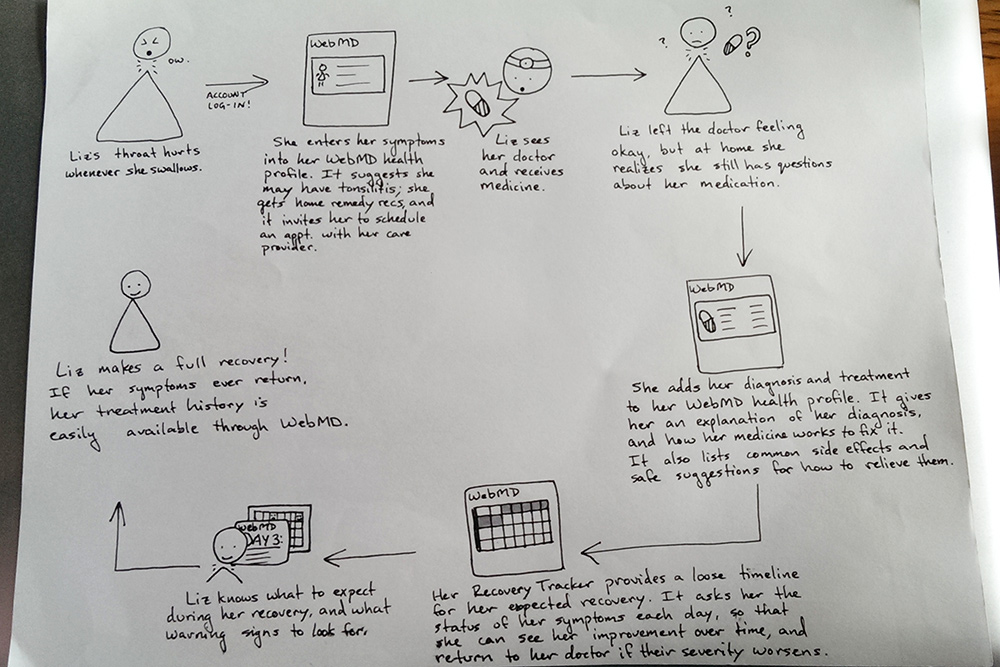 OW.
Liz's throat hurts
whenever she swallows.
ACCOUNT
LOG-IN!
WebMD
She enters her symptoms
into her WebMD health
profile. It suggests she
may have tonsilitis; she
gets home remedy recs, and
it invites her to schedule
an appt. with her care
provider.
Liz sees
her doctor
and receives
medicine.
?
?
?
Liz left the doctor feeling
okay, but at home she
realizes she still has questions
about her medication.
WebMD
She adds her diagnosis and treatment
to her WebMD health profile. It gives
her an explanation of her diagnosis,
and how her medicine works to fix it.
It also lists common side effects and
safe suggestions for how to relieve them.
WebMD
Her Recovery Tracker provides a loose timeline
for her expected recovery. It asks her the
status of her symptoms each day, so that
she can see her improvement over time, and
return to her doctor if their severity worsens.
WebMD
DAY 3:
Liz knows what to expect
during her recovery, and what
warning signs to look for.
Liz makes a full recovery!
If her symptoms ever return,
her treatment history is
easily available through WebMD.